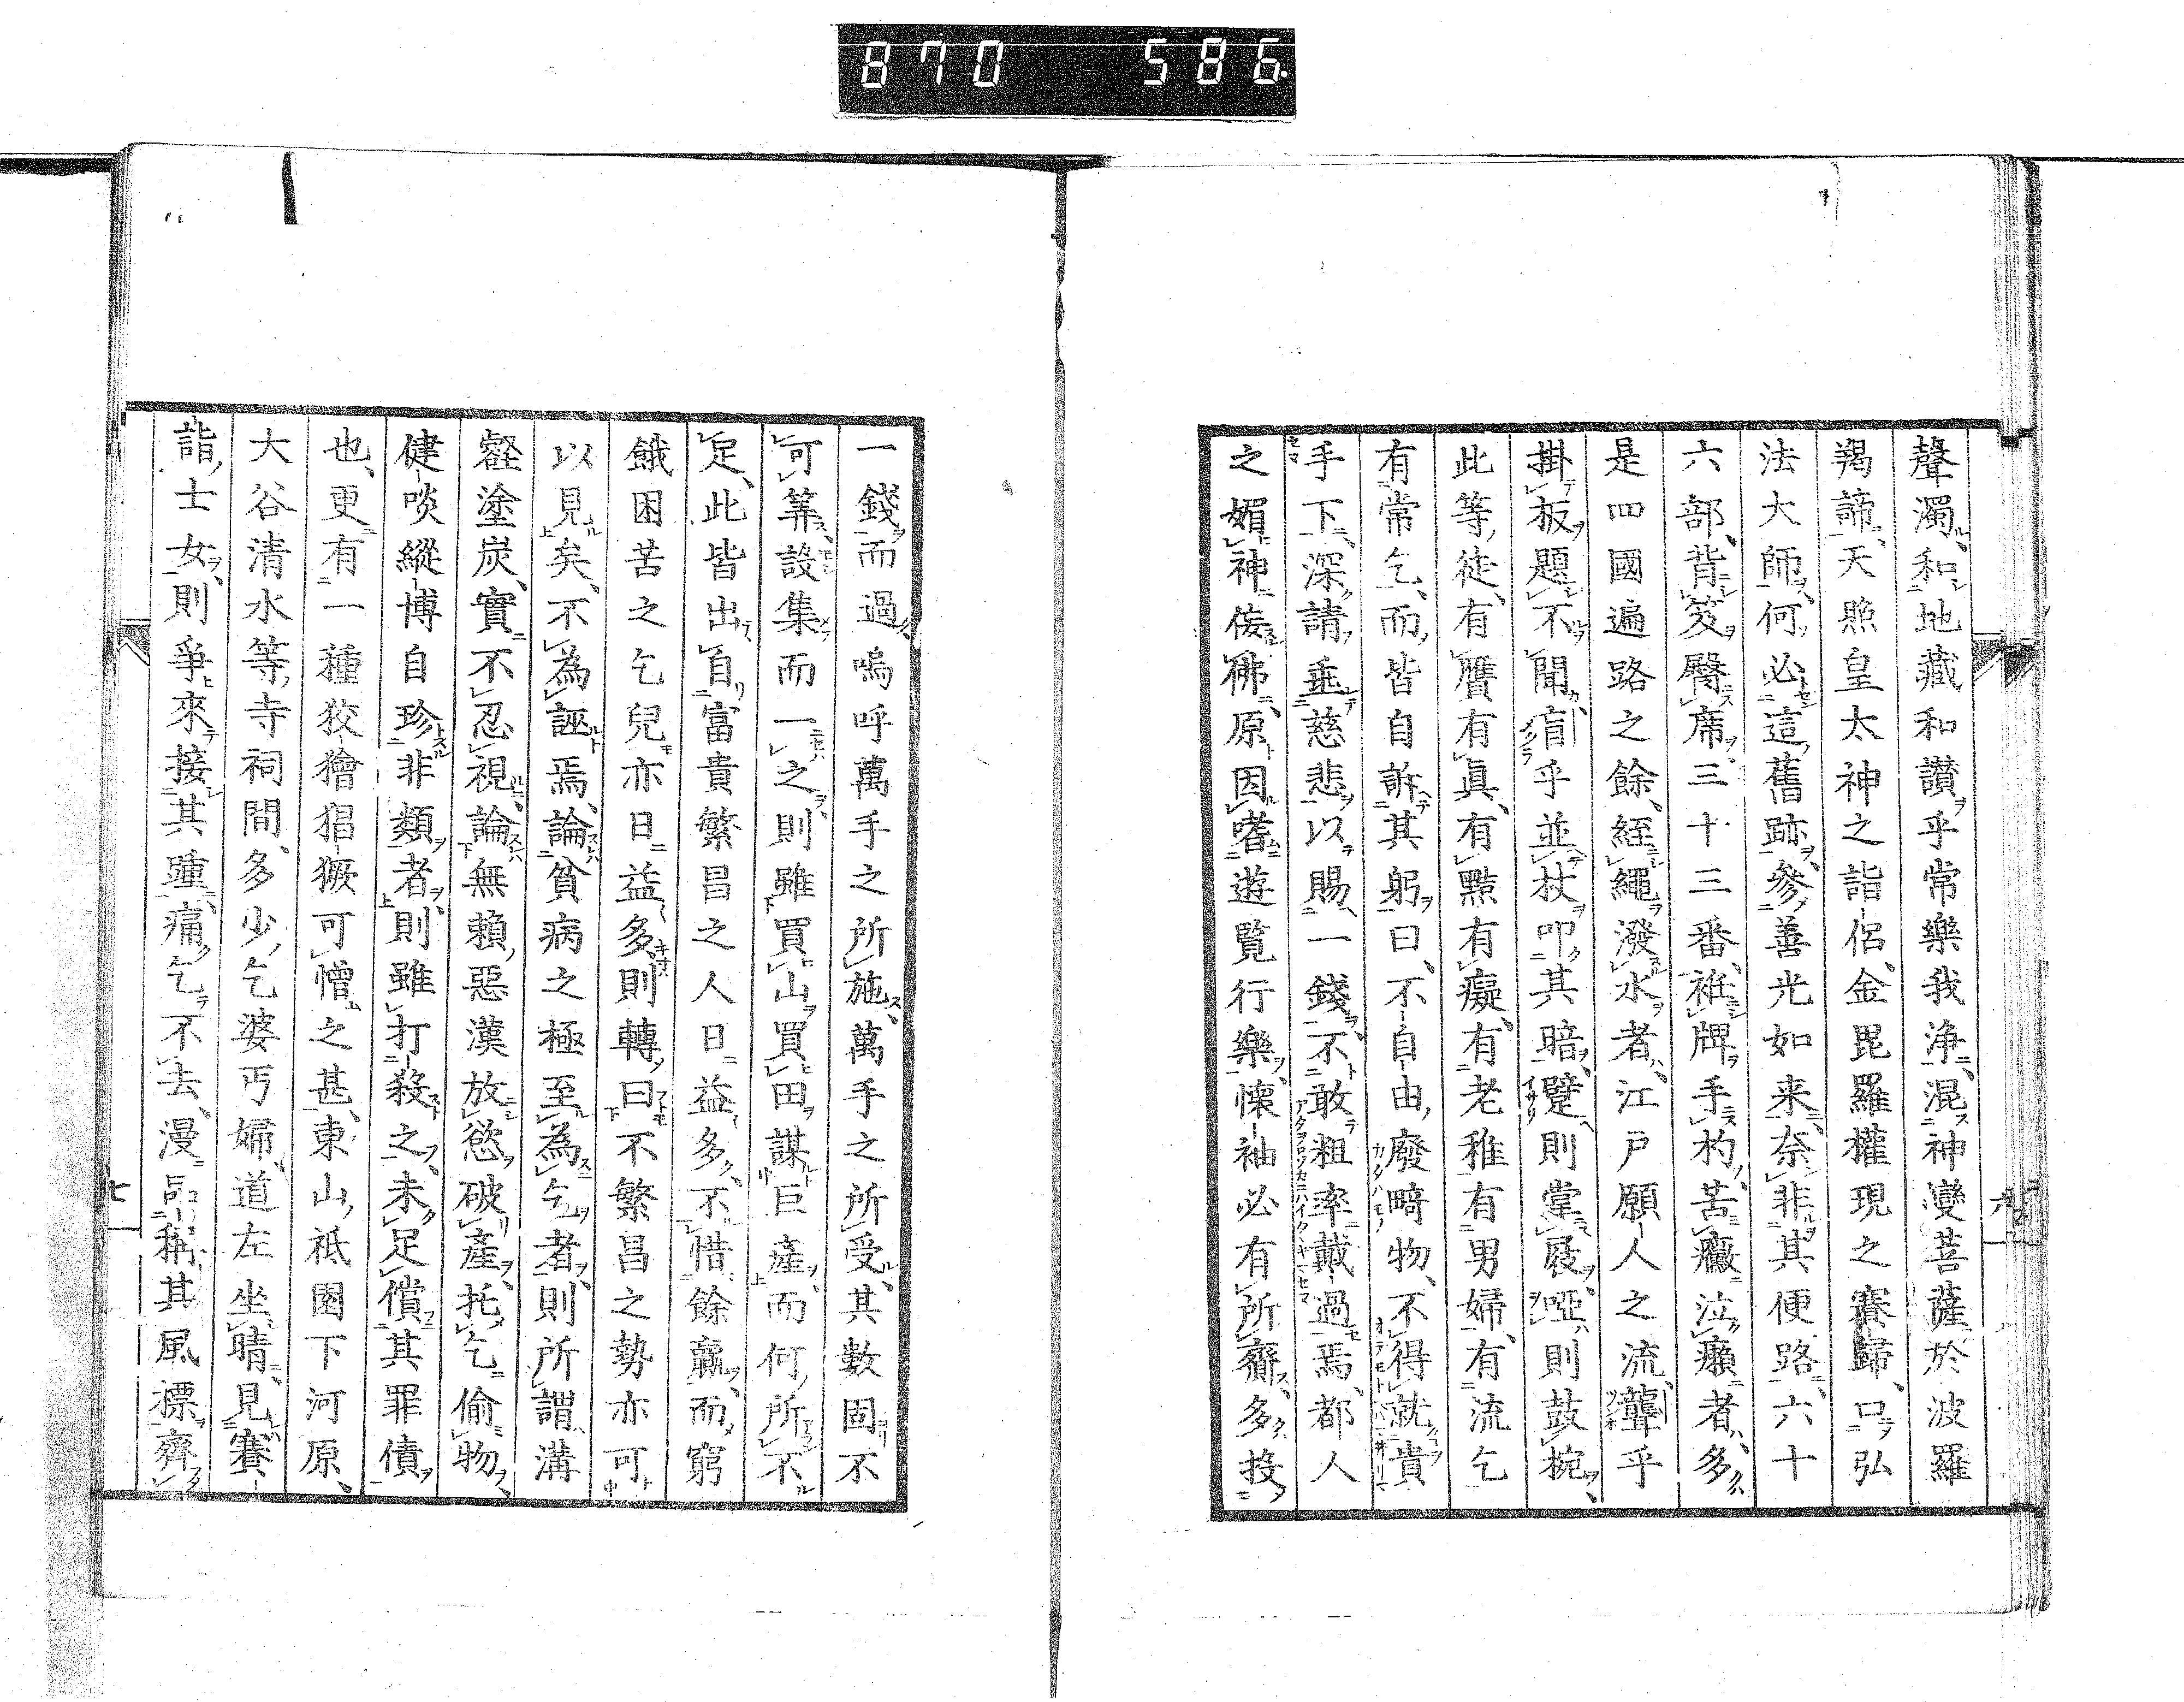 870 586
聲濁、和地藏和讃乎常樂我淨、混神變菩薩於波羅
羯諦、天照皇太神之詣侶、金毘羅權現之賽歸、口弘
法大師、何必這舊跡、參善光如来、奈非其便路、六十
六部、背笈、臀席、三十三番、袵牌、手杓、苦癥泣癩者、多
是四國遍路之餘、絰繩潑水者、江戸願人之流、聾乎
掛板題、不聞、盲乎並杖叩其暗、躄則掌屐、啞則鼓椀、
此等徒、有贋有眞、有黠有癡、有老稚有男婦、有流乞
有常乞、而皆自訴其躬曰、不自由、廢畸物、不得就貴
手下、深請垂慈悲以賜一錢、不敢粗率戴過焉、都人
之媚神佞佛、原因嗜遊覧行樂、懷袖必有所齎、多投
六
一錢而過、嗚呼萬手之所施、萬手之所受、其數固不
可筭、設集而一之、則雖買山買田謀巨產、而何所不
足、此皆出自富貴繁昌之人日益多、不惜餘贏、而窮
餓困苦之乞兒亦日益多、則轉曰不繁昌之勢亦可
以見矣、不為誣焉、論貧病之極至為乞者、則所謂溝
壑塗炭、實不忍視、論無賴惡漢放慾破產、托乞偷物、
健啖縱博自珍非類者、則雖打殺之、未足償其罪債
也、更有一種狡獪猖獗可憎之甚、東山祗園下河原、
大谷清水等寺祠間、多少乞婆丐婦、道左坐晴、見賽
詣士女、則爭來接其踵、痛乞不去、漫品稱其風標齊
七